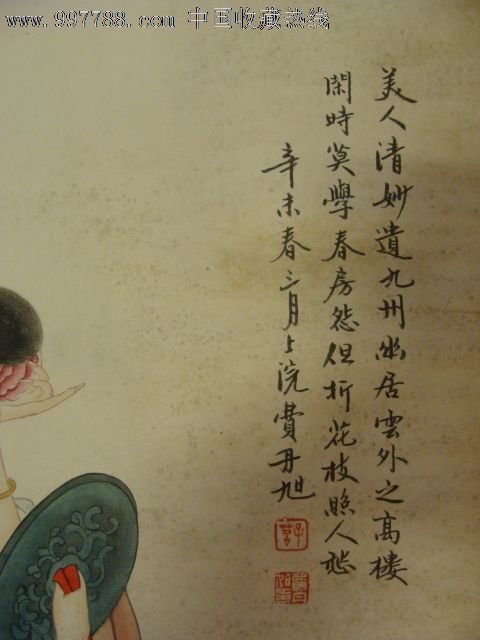 www.997788.com 中国收藏热线
美人清妙遺九州幽居雲外之高樓
閑時莫學春房怨但折花枝照人愁
辛未春三月上浣費丹旭
子苕